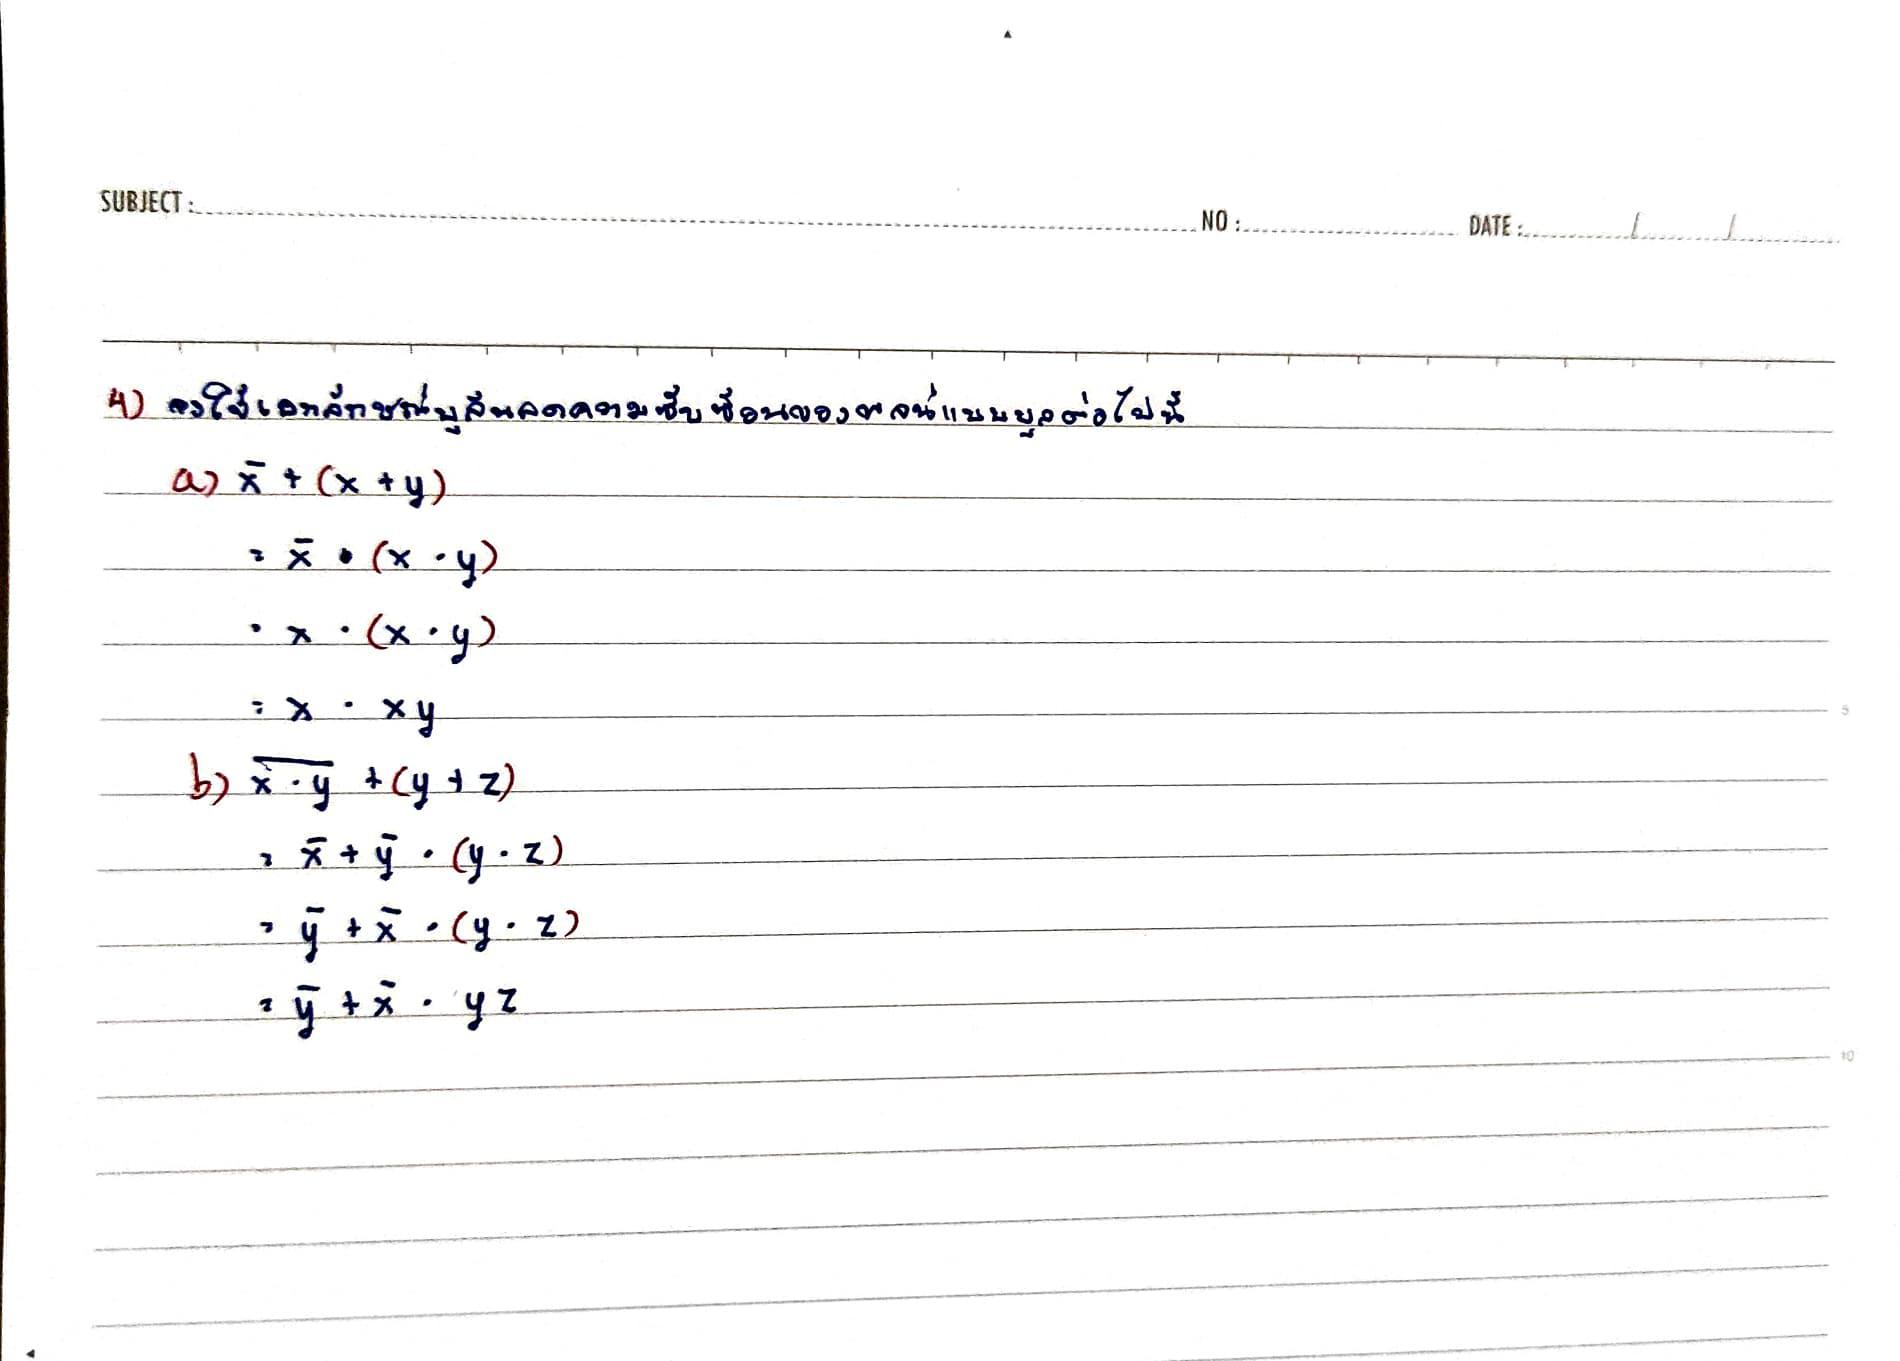 SUBJECT : NO : DATE : / /
4) จงใช้เอกลักษณ์บูลีนลดความซับซ้อนของพจน์แบบบูลต่อไปนี้
a) x̄ + (x + y)
= x̄ • (x · y)
= x · (x · y)
= x · xy
5
b) \overline{x · y} + (y + z)
= x̄ + ȳ · (y · z)
= ȳ + x̄ · (y · z)
= ȳ + x̄ · yz
10